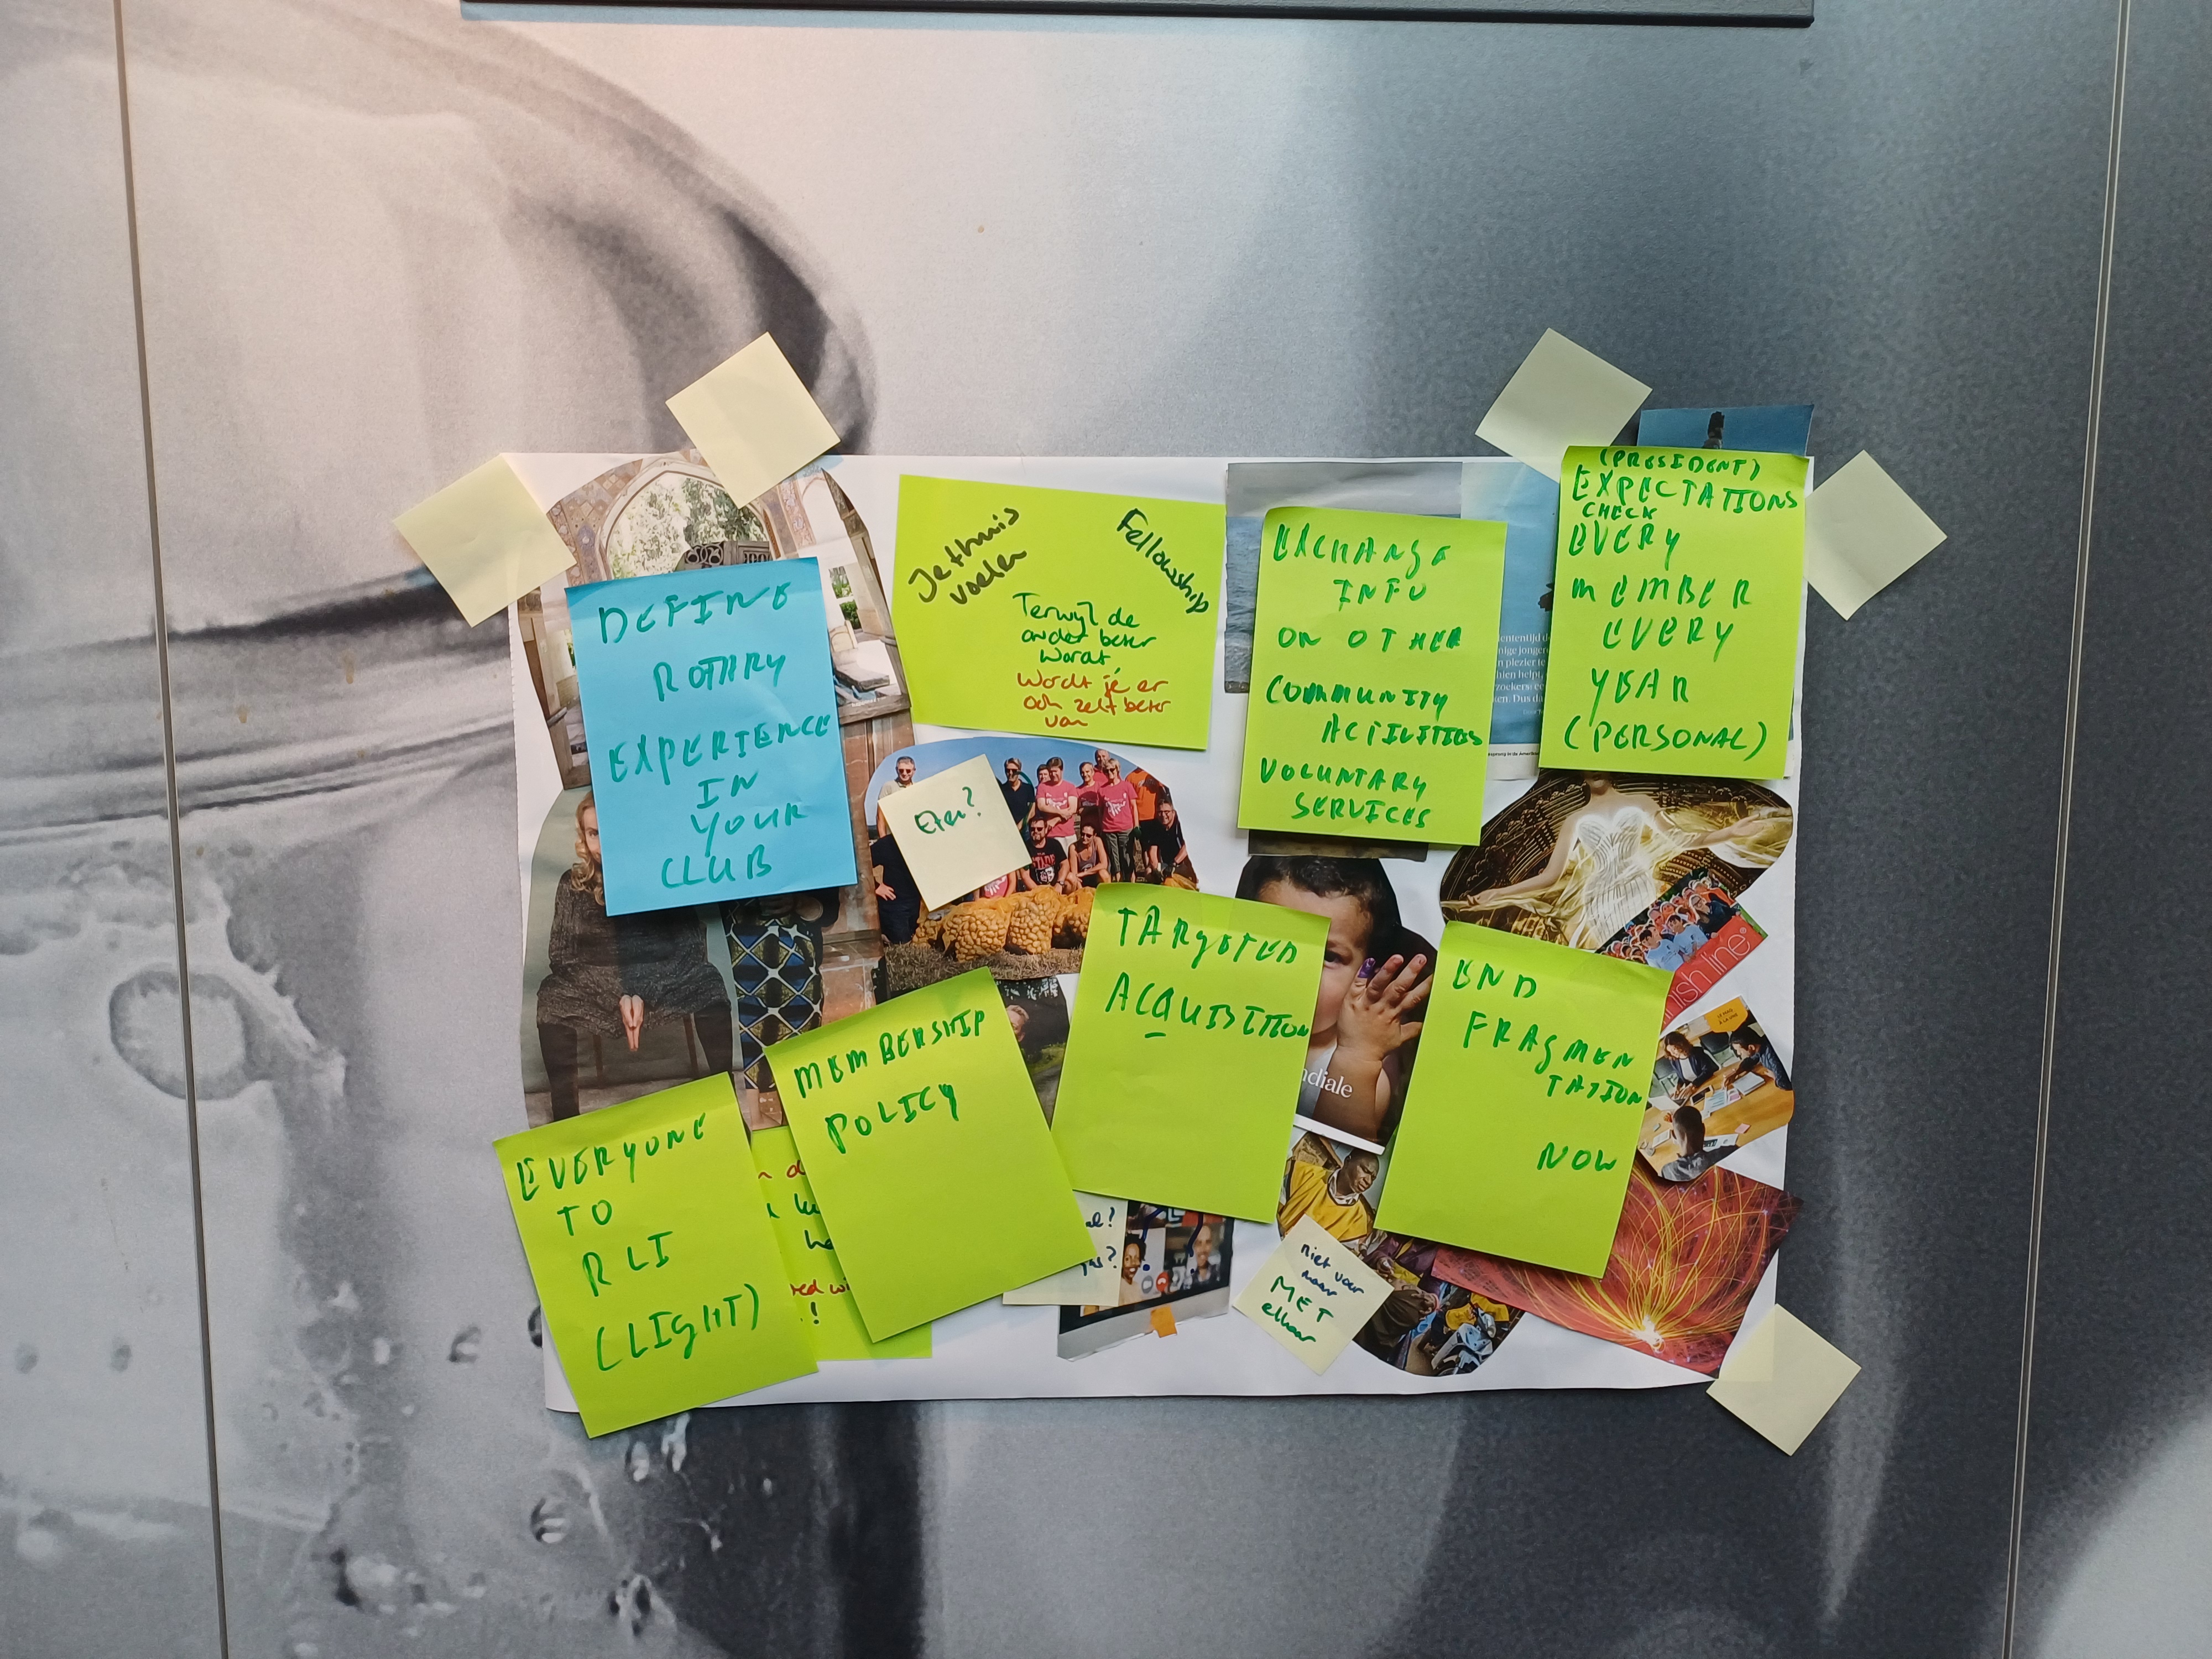 DEFINE
ROTARY
EXPERIENCE
IN
YOUR
CLUB
Je thuis
voelen
Fellowship
Terwijl de
ander beter
wordt,
wordt je er
ook zelf beter
van
EXCHANGE
INFO
ON OTHER
COMMUNITY
ACTIVITIES
VOLUNTARY
SERVICES
(PRESIDENT)
EXPECTATIONS
CHECK
EVERY
MEMBER
EVERY
YEAR
(PERSONAL)
Eten?
TARGETED
ACQUISITION
END
FRAGMEN
TATION
NOW
MEMBERSHIP
POLICY
EVERYONE
TO
RLI
(LIGHT)
niet voor
maar
MET
elkaar
ndiale
nish line